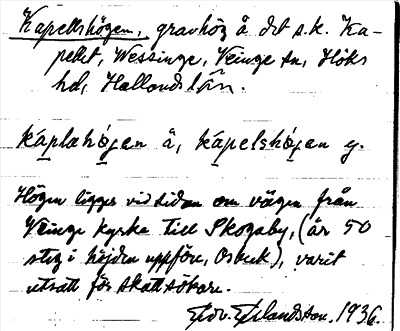 Kapellshögen, gravhög å det s.k. Ka-
pellet, Wessinge, Veinge sn, Höks
hd, Hallands län.
káplahö́gen ä, kápelshö́gen y.
Högen ligger vid sidan om vägen från
Veinge kyrka till Skogaby, (är 50
steg i höjden uppföre, Osbeck), varit
utsatt för skattsökare.
1936.